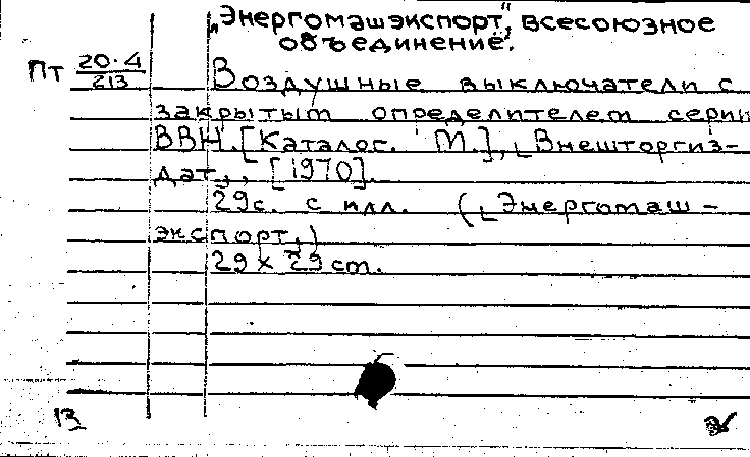 „Энергомашэкспорт", всесоюзное
объединение.
Пт 20-4
213
Воздушные выключатели с
закрытым определителем серии
ВВН. [Каталог. М.], „Внешторгиз-
дат", [1970].
29с. с илл. („Энергомаш-
экспорт")
29 x 29 cm.
13